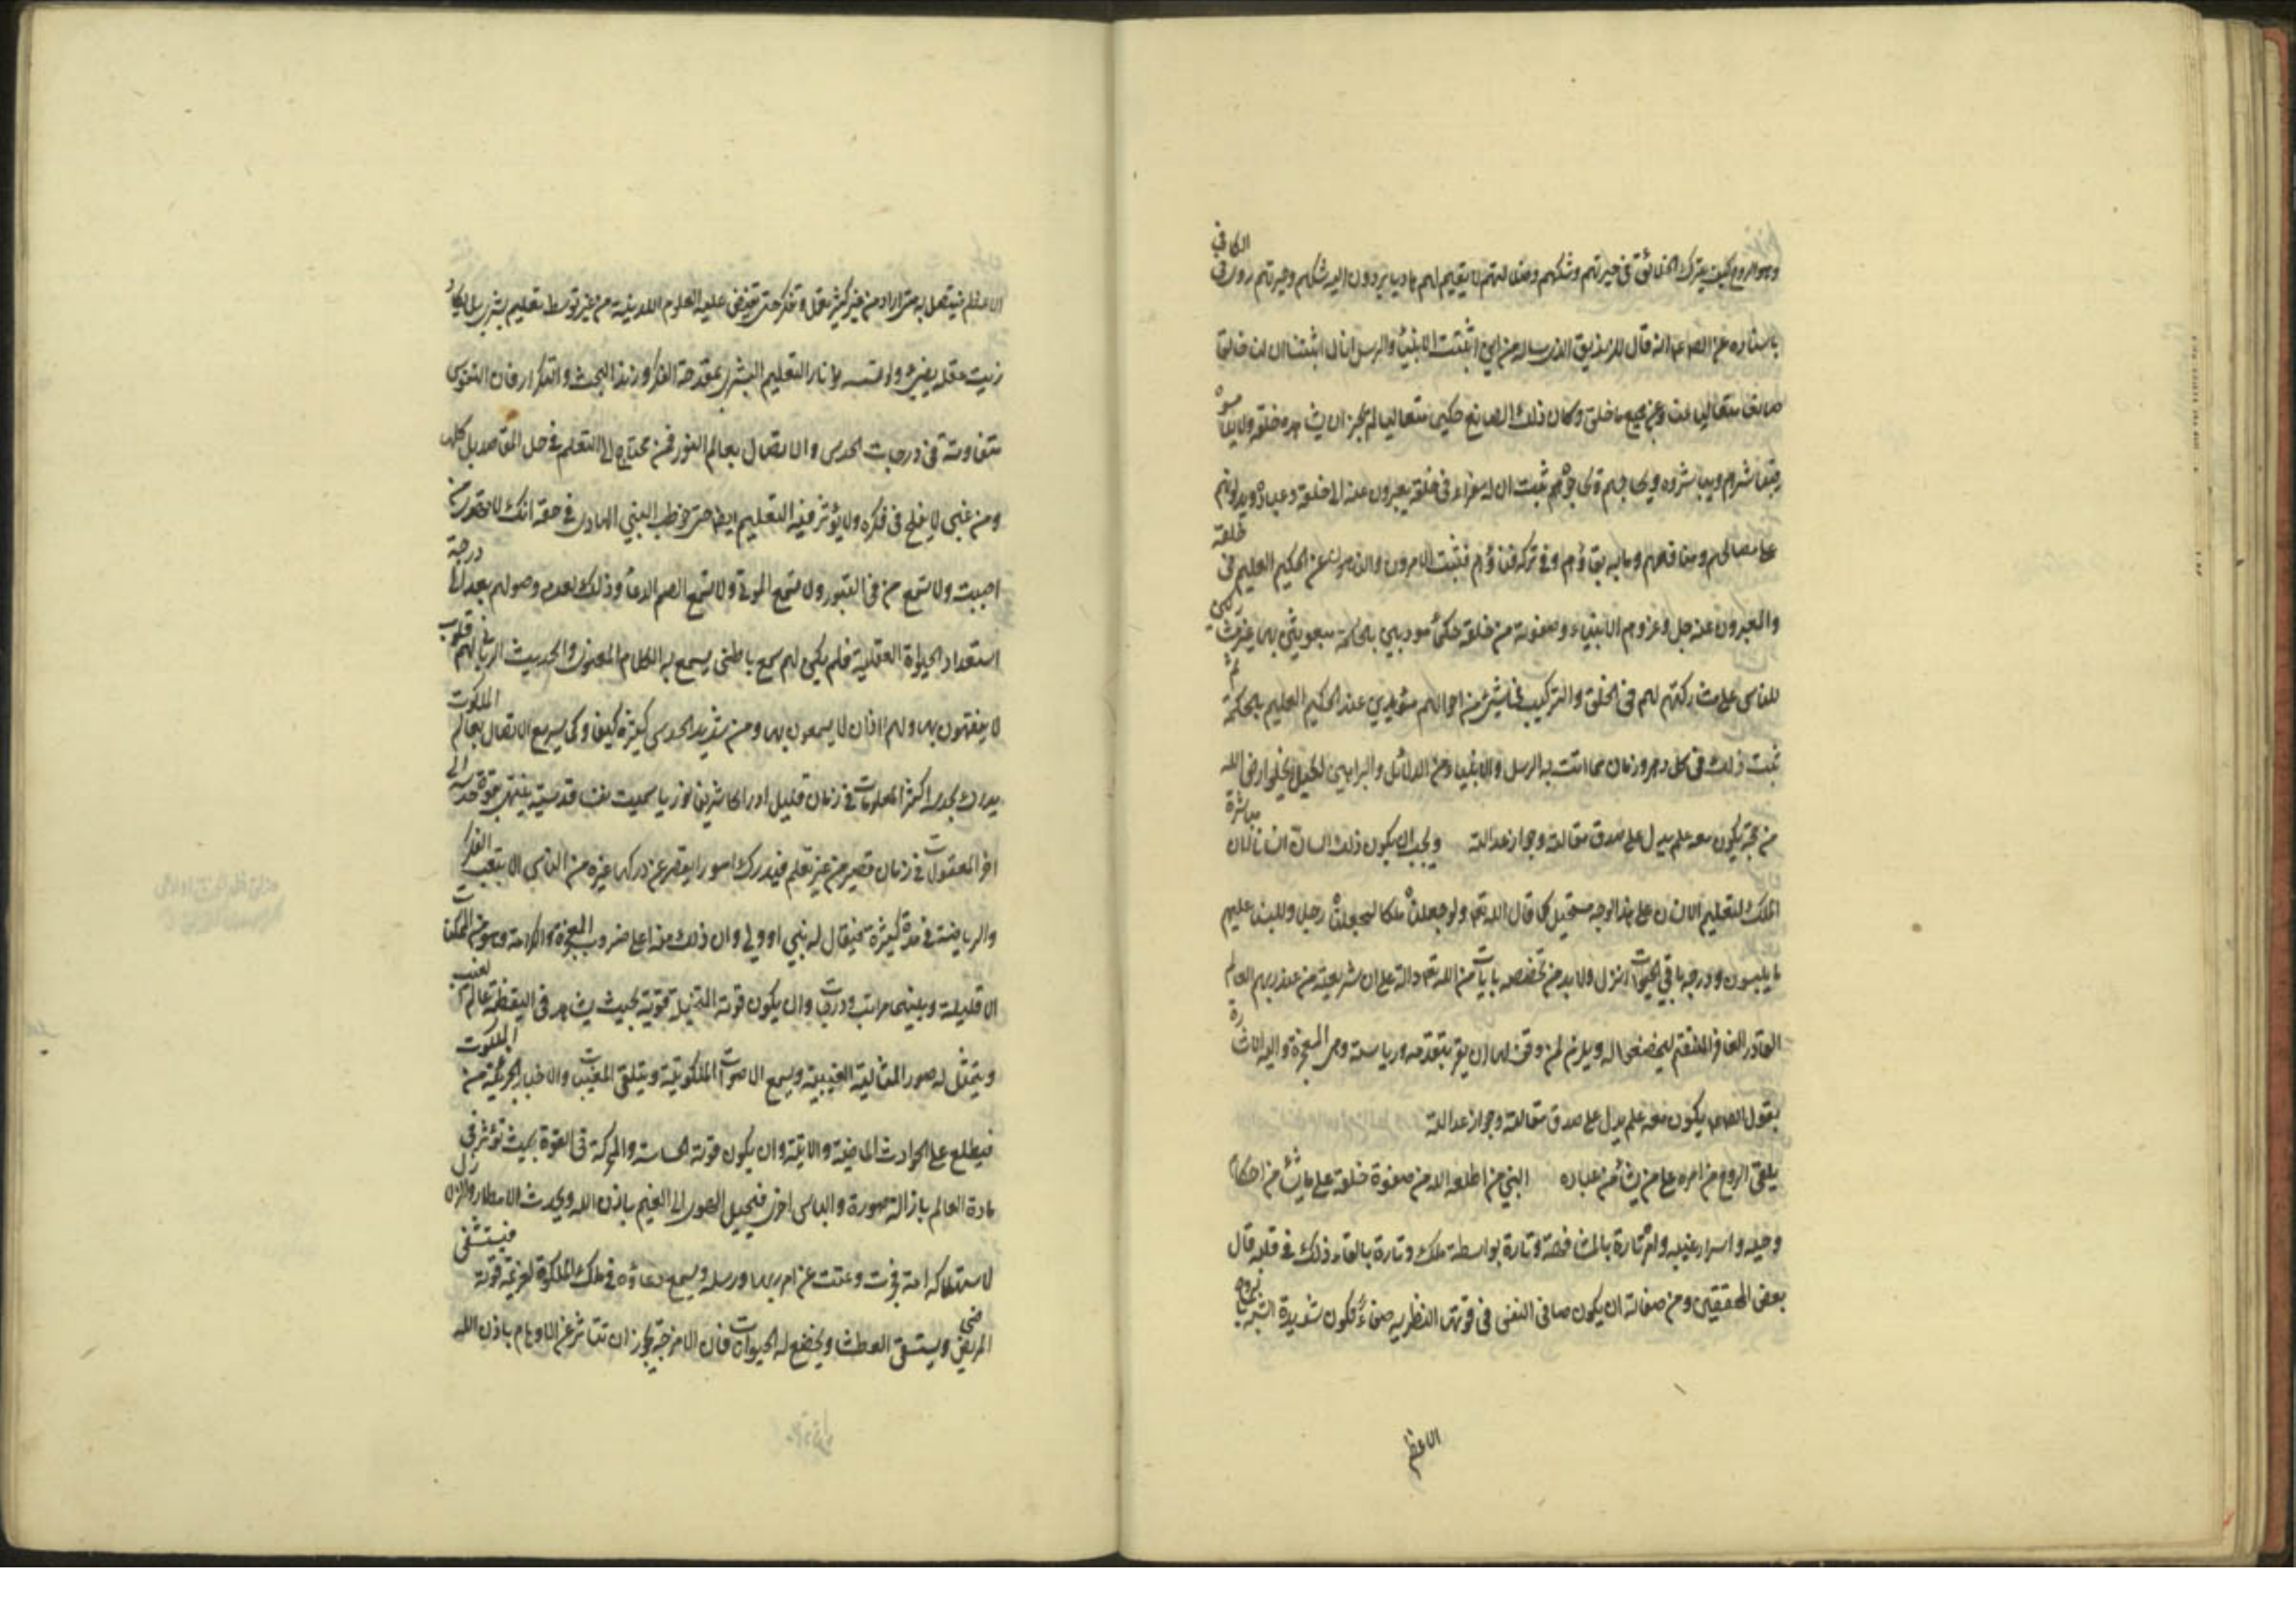 وهو الروع كيف يترك الخلائق في حيرتهم وشكهم وضلالتهم لا يقيم لهم هاديا يردون اليه شكهم وحيرتهم روى في الكافي
باسناده عن الصادق انه قال للزنديق الذي ساله من اين اثبتت الانبياء والرسل انا لما اثبتنا ان لنا خالقا
صانعا متعاليا عنا وعن جميع ما خلق وكان ذلك الصانع حكيما متعاليا لم يجز ان يشاهده خلقه ولا يلامسوه
فيباشرهم ويباشروه ويحاجهم ويحاجوه ثبت ان له سفراء في خلقه يعبرون عنه الى خلقه وعباده ويدلونهم
على مصالحهم ومنافعهم وما به بقاؤهم وفي تركه فناؤهم فثبت الامرون والناهون عن الحكيم العليم في خلقه
والمعبرون عنه جل وعز وهم الانبياء وصفوته من خلقه حكماء مؤدبين بالحكمة مبعوثين بها غير مشاركين
للناس على مشاركتهم لهم في الخلق والتركيب في شيء من احوالهم مؤيدين عند الحكيم العليم بالحكمة ثم
ثبت ذلك في كل دهر وزمان مما اتت به الرسل والانبياء من الدلائل والبراهين لكيلا يخلو ارض الله
من حجة يكون معه علم يدل على صدق مقالته وجواز عدالته ويجب ان يكون ذلك السان انسانا لان مباشرة
الملك لتعليم الانسان على هذا الوجه مستحيل كما قال الله تعالى ولو جعلناه ملكا لجعلناه رجلا وللبسنا عليهم
ما يلبسون ودرجة باقي الحيوانات انزل ولا بد من تخصصه بايات من الله تعالى دالة على ان شريعته من عند ربهم العالم
القادر الغافر المنتقم ليخضع له ويلزم لمن وقف لها ان يقر بتقدمه ورياسته وهي المعجزة واليه الاشارة
بقوله يكون معه علم يدل على صدق مقالته وجواز عدالته
يلقى الروح من امره على من يشاء من عباده النبي من اطلعه الله من صفوة خلقه على ما يشاء من احكام
وحيه واسرار غيبه وامره تارة بالمشافهة وتارة بواسطة ملك وتارة بالقاء ذلك في قلبه قال
بعض المحققين ومن صفاته ان يكون صافي النفس في قوتها النظرية صفاء تكون شديدة الشبه بالروح
الاعظم
الاعظم فيتصل به متى اراد من غير كثير تعمل وتفكر حتى يفيض عليه العلوم اللدنية من غير توسط تعليم بشري بل يكاد
زيت عقله يضيء ولو لم تمسسه نار التعليم البشري بمقدحة الفكر وزند البحث والتكرار فان النفوس
متفاوتة في درجات الحدس والاتصال بعالم النور فمن محتاج الى التعلم في جل المقاصد بل كلها
ومن غبي لا يفلح في فكره ولا يؤثر فيه التعليم ايضا حتى خوطب النبي الهادي في حقه انك لا تهدي من
احببت ولا تسمع من في القبور ولا تسمع الموتى ولا تسمع الصم الدعاء وذلك لعدم وصولهم بعد الى درجة
استعداد الحياة العقلية فلم يكن لهم سمع باطني يسمع به الكلام المعنوي والحديث الرباني لهم قلوب
لا يفقهون بها ولهم اذان لا يسمعون بها ومن شديد الحدس كثيره كيفا وكما سريع الاتصال بعالم الملكوت
يدرك بحدسه اكثر المعلومات في زمان قليل ادراكا شريفا نوريا سميت نفسا قدسية ينتهي بقوة حدسه الى
اخر المعقولات في زمان قصير من غير تعلم فيدرك امورا يقصر عن دركها غيره من الناس الا بتعب الفكر
والرياضة في مدة كثيرة فيقال له نبي او ولي وان ذلك منه اعلى ضروب المعجزة والكرامة وهو من الممكنات
الاقلية وبينهما مراتب ودرجات وان يكون قوته المتخيلة قوية بحيث يشاهد في اليقظة عالم الغيب
ويتمثل له صور المثالية الغيبية ويسمع الاصوات الملكوتية ويتلقى المغيبات والاخبار الجزئية من الملكوت
فيطلع على الحوادث الماضية والاتية وان يكون قوته الحساسة والمحركة في القوة بحيث تؤثر في
مادة العالم بازالة صورة والباس اخرى فيحيل الهواء الى الغيم باذن الله ويحدث الامطار والزلازل
لاستهلاك امة فجرت وعتت عن امر ربها ورسله ويسمع دعاؤه في ملك الملكوت لعزيمة قوته فيستشفي
المرضى ويستسقي العطشى ويخضع له الحيوانات فان الامزجة يجوز ان تتاثر عن الاوهام باذن الله